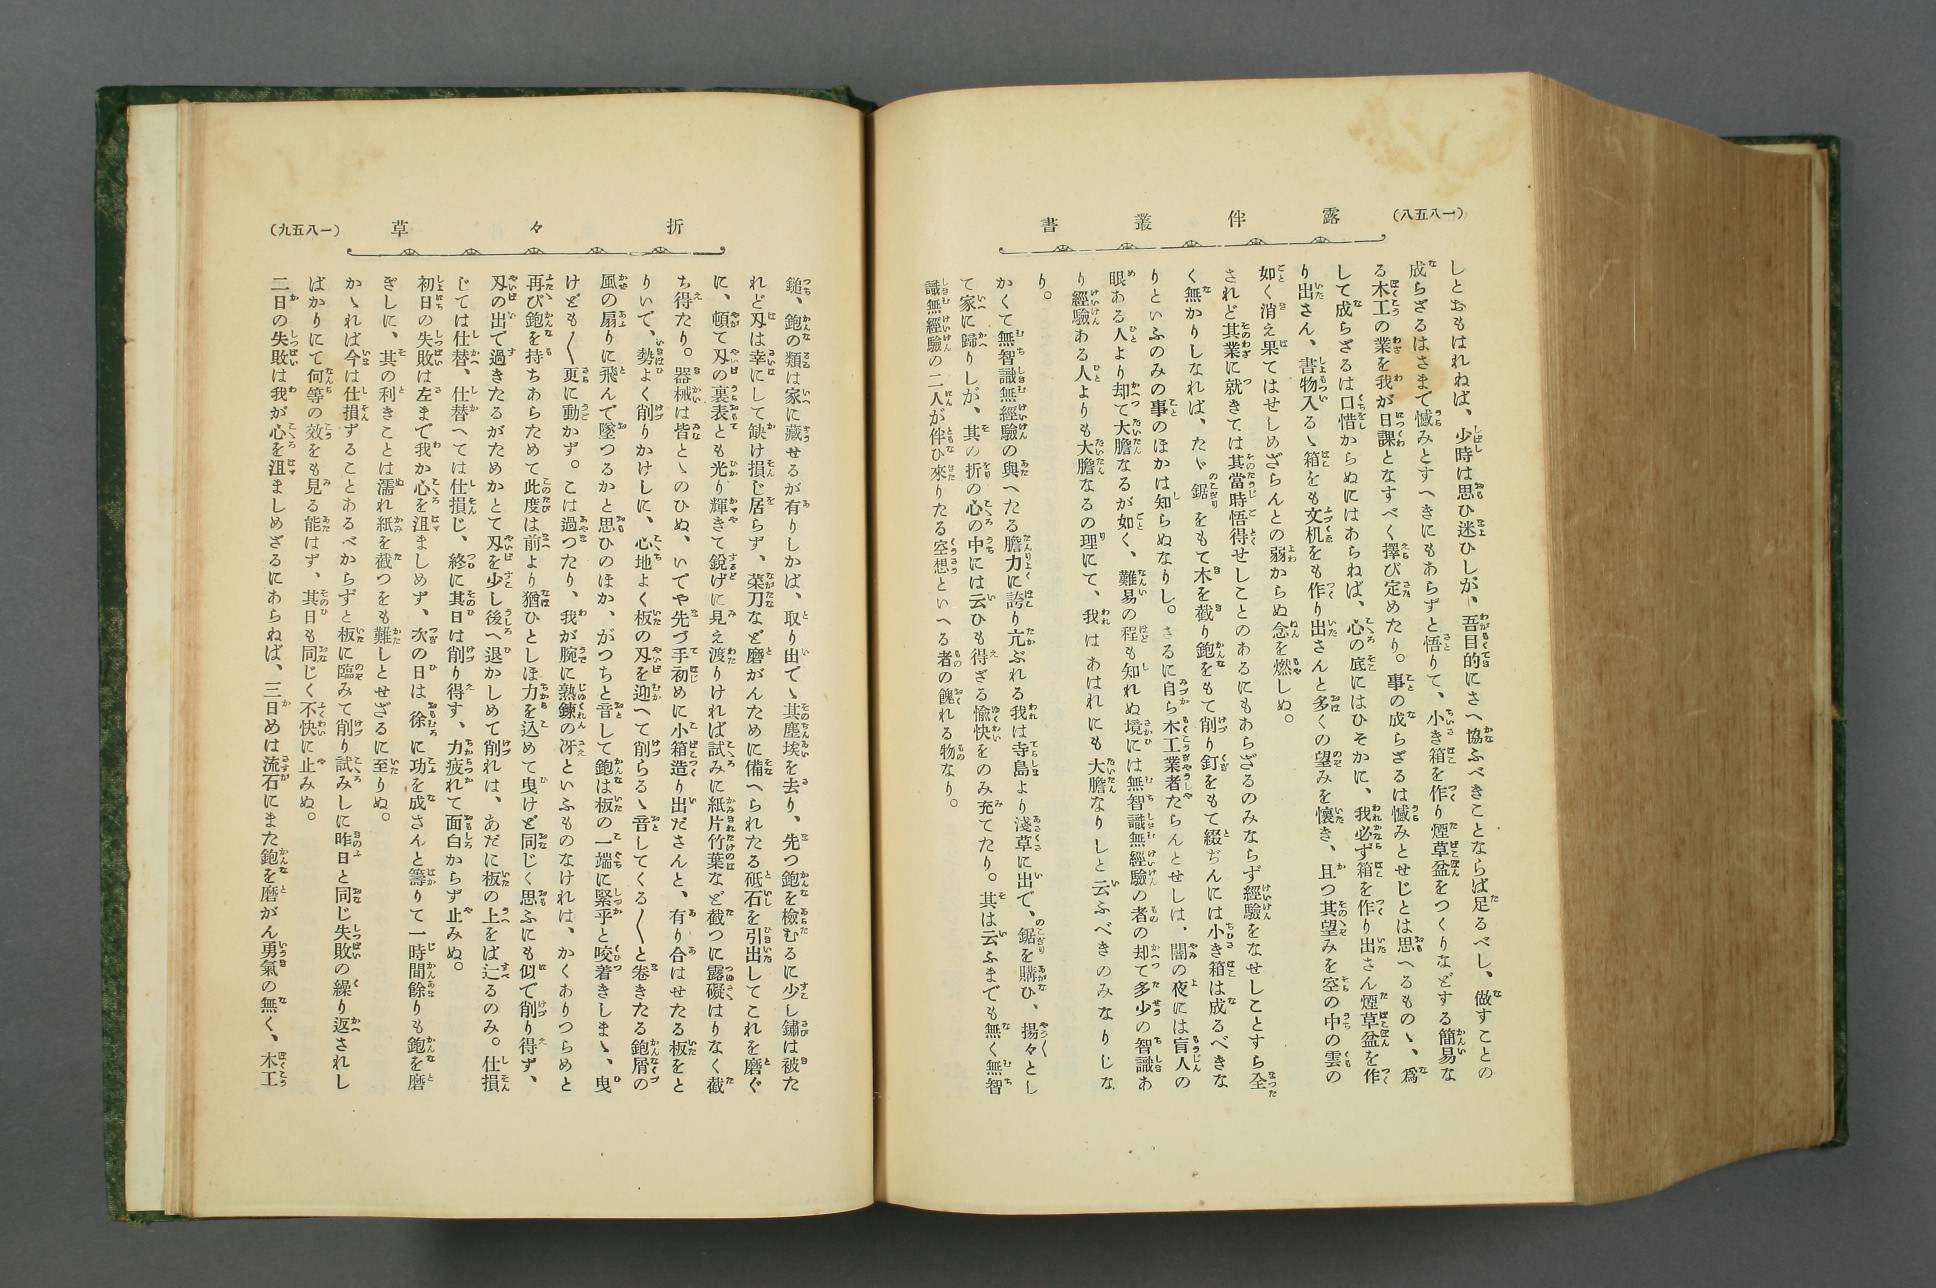 (一八五八)
露伴叢書
しとおもはれねば、少時は思ひ迷ひしが、吾目的にさへ協ふべきことならば足るべし、做すことの
成らざるはさまで憾みとすへきにもあらずと悟りて、小き箱を作り煙草盆をつくりなどする簡易な
る木工の業を我が日課となすべく擇び定めたり。事の成らざるは憾みとせじとは思へるものゝ、爲
して成らざるは口惜からぬにはあらねば、心の底にはひそかに、我必ず箱を作り出さん煙草盆を作
り出さん、書物入るゝ箱をも文机をも作り出さんと多くの望みを懷き、且つ其望みを空の中の雲の
如く消え果てはせしめざらんとの弱からぬ念を燃しぬ。
されど其業に就きては其當時悟得せしことのあるにもあらざるのみならず經驗をなせしことすら全
く無かりしなれば、たゞ鋸をもて木を截り鉋をもて削り釘をもて綴ぢんには小き箱は成るべきな
りといふのみの事のほかは知らぬなりし。さるに自ら木工業者たらんとせしは、闇の夜には盲人の
眼ある人より却て大膽なるが如く、難易の程も知れぬ境には無智識無經驗の者の却て多少の智識あ
り經驗ある人よりも大膽なるの理にて、我はあはれにも大膽なりしと云ふべきのみなりしな
り。
かくて無智識無經驗の與へたる膽力に誇り亢ぶれる我は寺島より淺草に出で、鋸を購ひ、揚々とし
て家に歸りしが、其の折の心の中には云ひも得ざる愉快をのみ充てたり。其は云ふまでも無く無智
識無經驗の二人が伴ひ來りたる空想といへる者の餽れる物なり。
折々草
(一八五九)
鎚、鉋の類は家に藏せるが有りしかば、取り出でゝ其塵埃を去り、先つ鉋を檢むるに少し鏽は被た
れど刄は幸にして缺け損じ居らず、菜刀など磨がんために備へられたる砥石を引出してこれを磨ぐ
に、頓て刄の裏表とも光り輝きて鋭げに見え渡りければ試みに紙片竹葉など截つに露礙はりなく截
ち得たり。器械は皆とゝのひぬ、いでや先づ手初めに小箱造り出ださんと、有り合はせたる板をと
りいで、勢よく削りかけしに、心地よく板の刄を迎へて削らるゝ音してくる〳〵と卷きたる鉋屑の
風の扇りに飛んで墜つるかと思ひのほか、がつちと音して鉋は板の一端に緊乎と咬着きしまゝ、曳
けども〳〵更に動かず。こは過つたり、我が腕に熟鍊の冴といふものなければ、かくありつらめと
再び鉋を持ちあらためて此度は前より猶ひとしほ力を込めて曳けど同じく思ふにも似で削り得ず、
刄の出で過きたるがためかとて刄を少し後へ退かしめて削れは、あだに板の上をば辷るのみ。仕損
じては仕替、仕替へては仕損じ、終に其日は削り得す、力疲れて面白からず止みぬ。
初日の失敗は左まで我か心を沮ましめず、次の日は徐に功を成さんと籌りて一時間餘りも鉋を磨
ぎしに、其の利きことは濡れ紙を截つをも難しとせざるに至りぬ。
かゝれば今は仕損ずることあるべからずと板に臨みて削り試みしに昨日と同じ失敗の繰り返されし
ばかりにて何等の效をも見る能はず、其日も同じく不快に止みぬ。
二日の失敗は我が心を沮ましめざるにあらねば、三日めは流石にまた鉋を磨がん勇氣の無く、木工